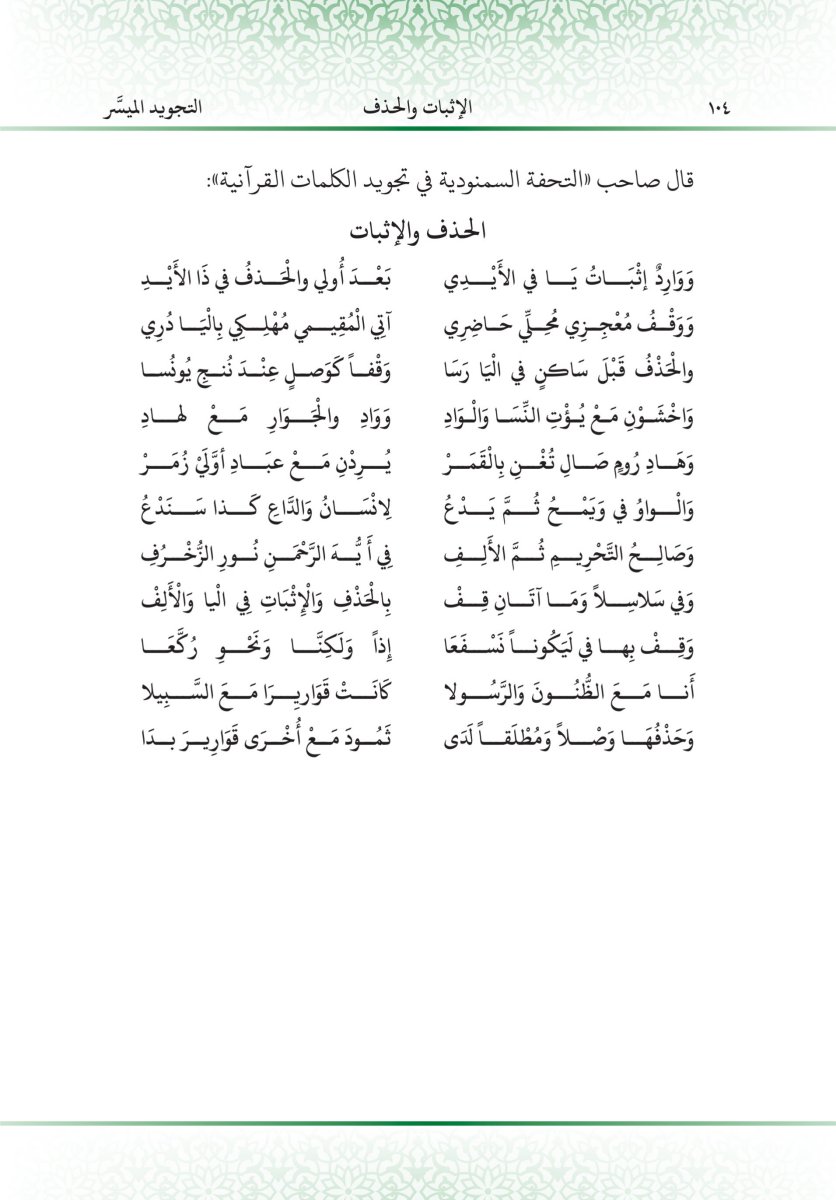 ١٠٤ الإثبات والحذف التجويد الميسَّر
قال صاحب «التحفة السمنودية في تجويد الكلمات القرآنية»:
الحذف والإثبات
وَوَارِدٌ إثْبَاتُ يَا في الأَيْدِي بَعْدَ أُولي والْحَذفُ في ذَا الأَيْدِ
وَوَقْفُ مُعْجِزِي مُحِلِّي حَاضِرِي آتِي الْمُقِيمي مُهْلِكِي بِالْيَا دُرِي
والْحَذْفُ قَبْلَ سَاكنٍ في الْيَا رَسَا وَقْفاً كَوَصلٍ عِنْدَ نُنجِ يُونُسا
وَاخْشَوْنِ مَعْ يُؤْتِ النِّسَا وَالْوَادِ وَوَادِ والْجَوَارِ مَعْ لهادِ
وَهَادِ رُومٍ صَالِ تُغْنِ بِالْقَمَرْ يُرِدْنِ مَعْ عبَادِ أوَّلَيْ زُمَرْ
وَالْواوُ في وَيَمْحُ ثُمَّ يَدْعُ لِانْسَانُ وَالدَّاعِ كَذا سَنَدْعُ
وَصَالِحُ التَّحْرِيمِ ثُمَّ الأَلِفِ فِي أَيُّهَ الرَّحْمَنِ نُورِ الزُّخْرُفِ
وَفي سَلاسِلاً وَمَا آتَانِ قِفْ بِالْحَذْفِ وَالْإِثْبَاتِ فِي اليا وَالْأَلِفْ
وَقِفْ بِها في لَيَكُوناً نَسْفَعَا إِذاً وَلَكِنَّا وَنَحْوِ رُكَّعَا
أَنا مَعَ الظُّنُونَ وَالرَّسُولا كَانَتْ قَوَارِيرَا مَعَ السَّبِيلا
وَحَذْفُهَا وَصْلاً وَمُطْلَقاً لَدَى ثَمُودَ مَعْ أُخْرَى قَوَارِيرَ بدَا